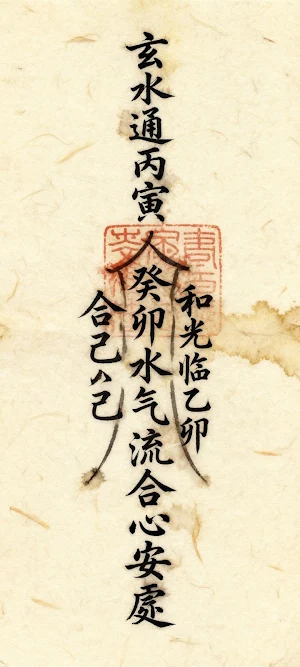 玄水通丙寅
和光临乙卯
癸卯水气流合心安處
合己己